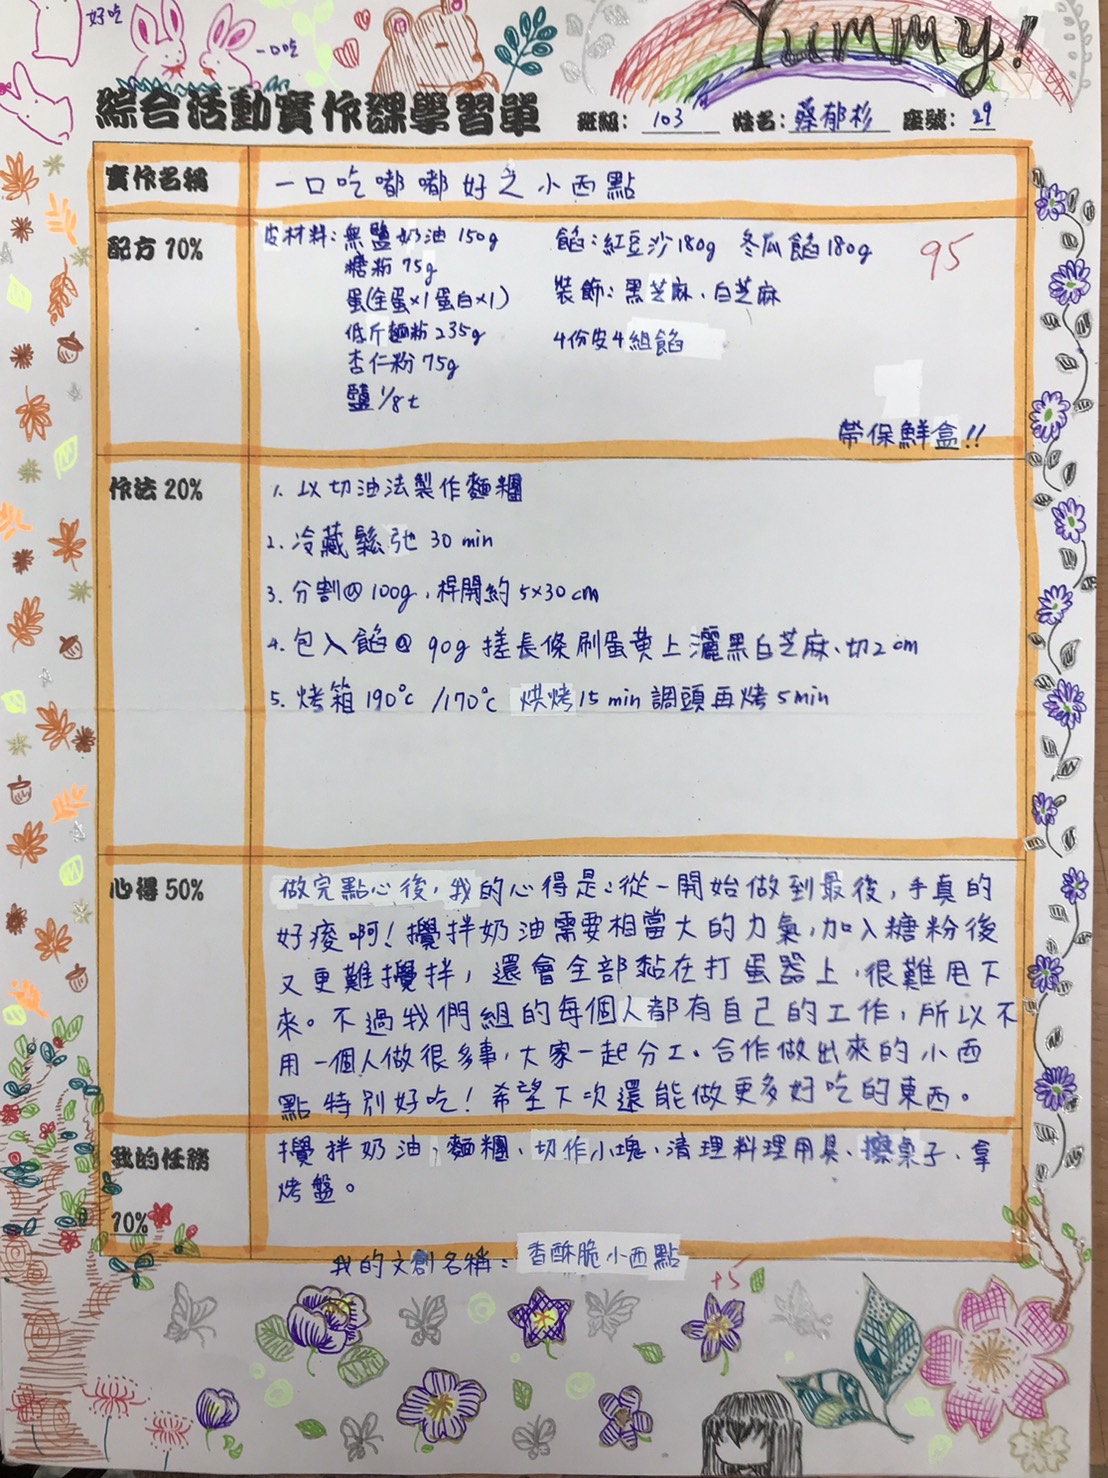 好吃
一口吃
Yummy!
綜合活動實作課學習單 班級: 103 姓名: 蔡郁杉 座號: 29
實作名稱 一口吃嘟嘟好之小西點
配方 10%
皮材料:無鹽奶油 150g 餡:紅豆沙180g 冬瓜餡180g
95
糖粉 75g
蛋(全蛋×1 蛋白×1) 裝飾:黑芝麻、白芝麻
低斤麵粉 235g 4份皮4組餡
杏仁粉 75g
鹽 1/8 t
帶保鮮盒!!
作法 20% 1. 以切油法製作麵糰
2. 冷藏鬆弛 30 min
3. 分割@ 100g,桿開約 5×30 cm
4. 包入餡@ 90g 搓長條刷蛋黃上灑黑白芝麻、切2cm
5. 烤箱 190°c /170°c 烘烤15 min 調頭再烤 5min
心得 50% 做完點心後,我的心得是:從一開始做到最後,手真的
好痠啊!攪拌奶油需要相當大的力氣,加入糖粉後
又更難攪拌,還會全部黏在打蛋器上,很難甩下
來。不過我們組的每個人都有自己的工作,所以不
用一個人做很多事,大家一起分工。合作做出來的小西
點特別好吃!希望下次還能做更多好吃的東西。
我的任務 攪拌奶油、麵糰、切作小塊、清理料理用具、擦桌子、拿
烤盤。
10%
我的文創名稱: 香酥脆小西點
+5